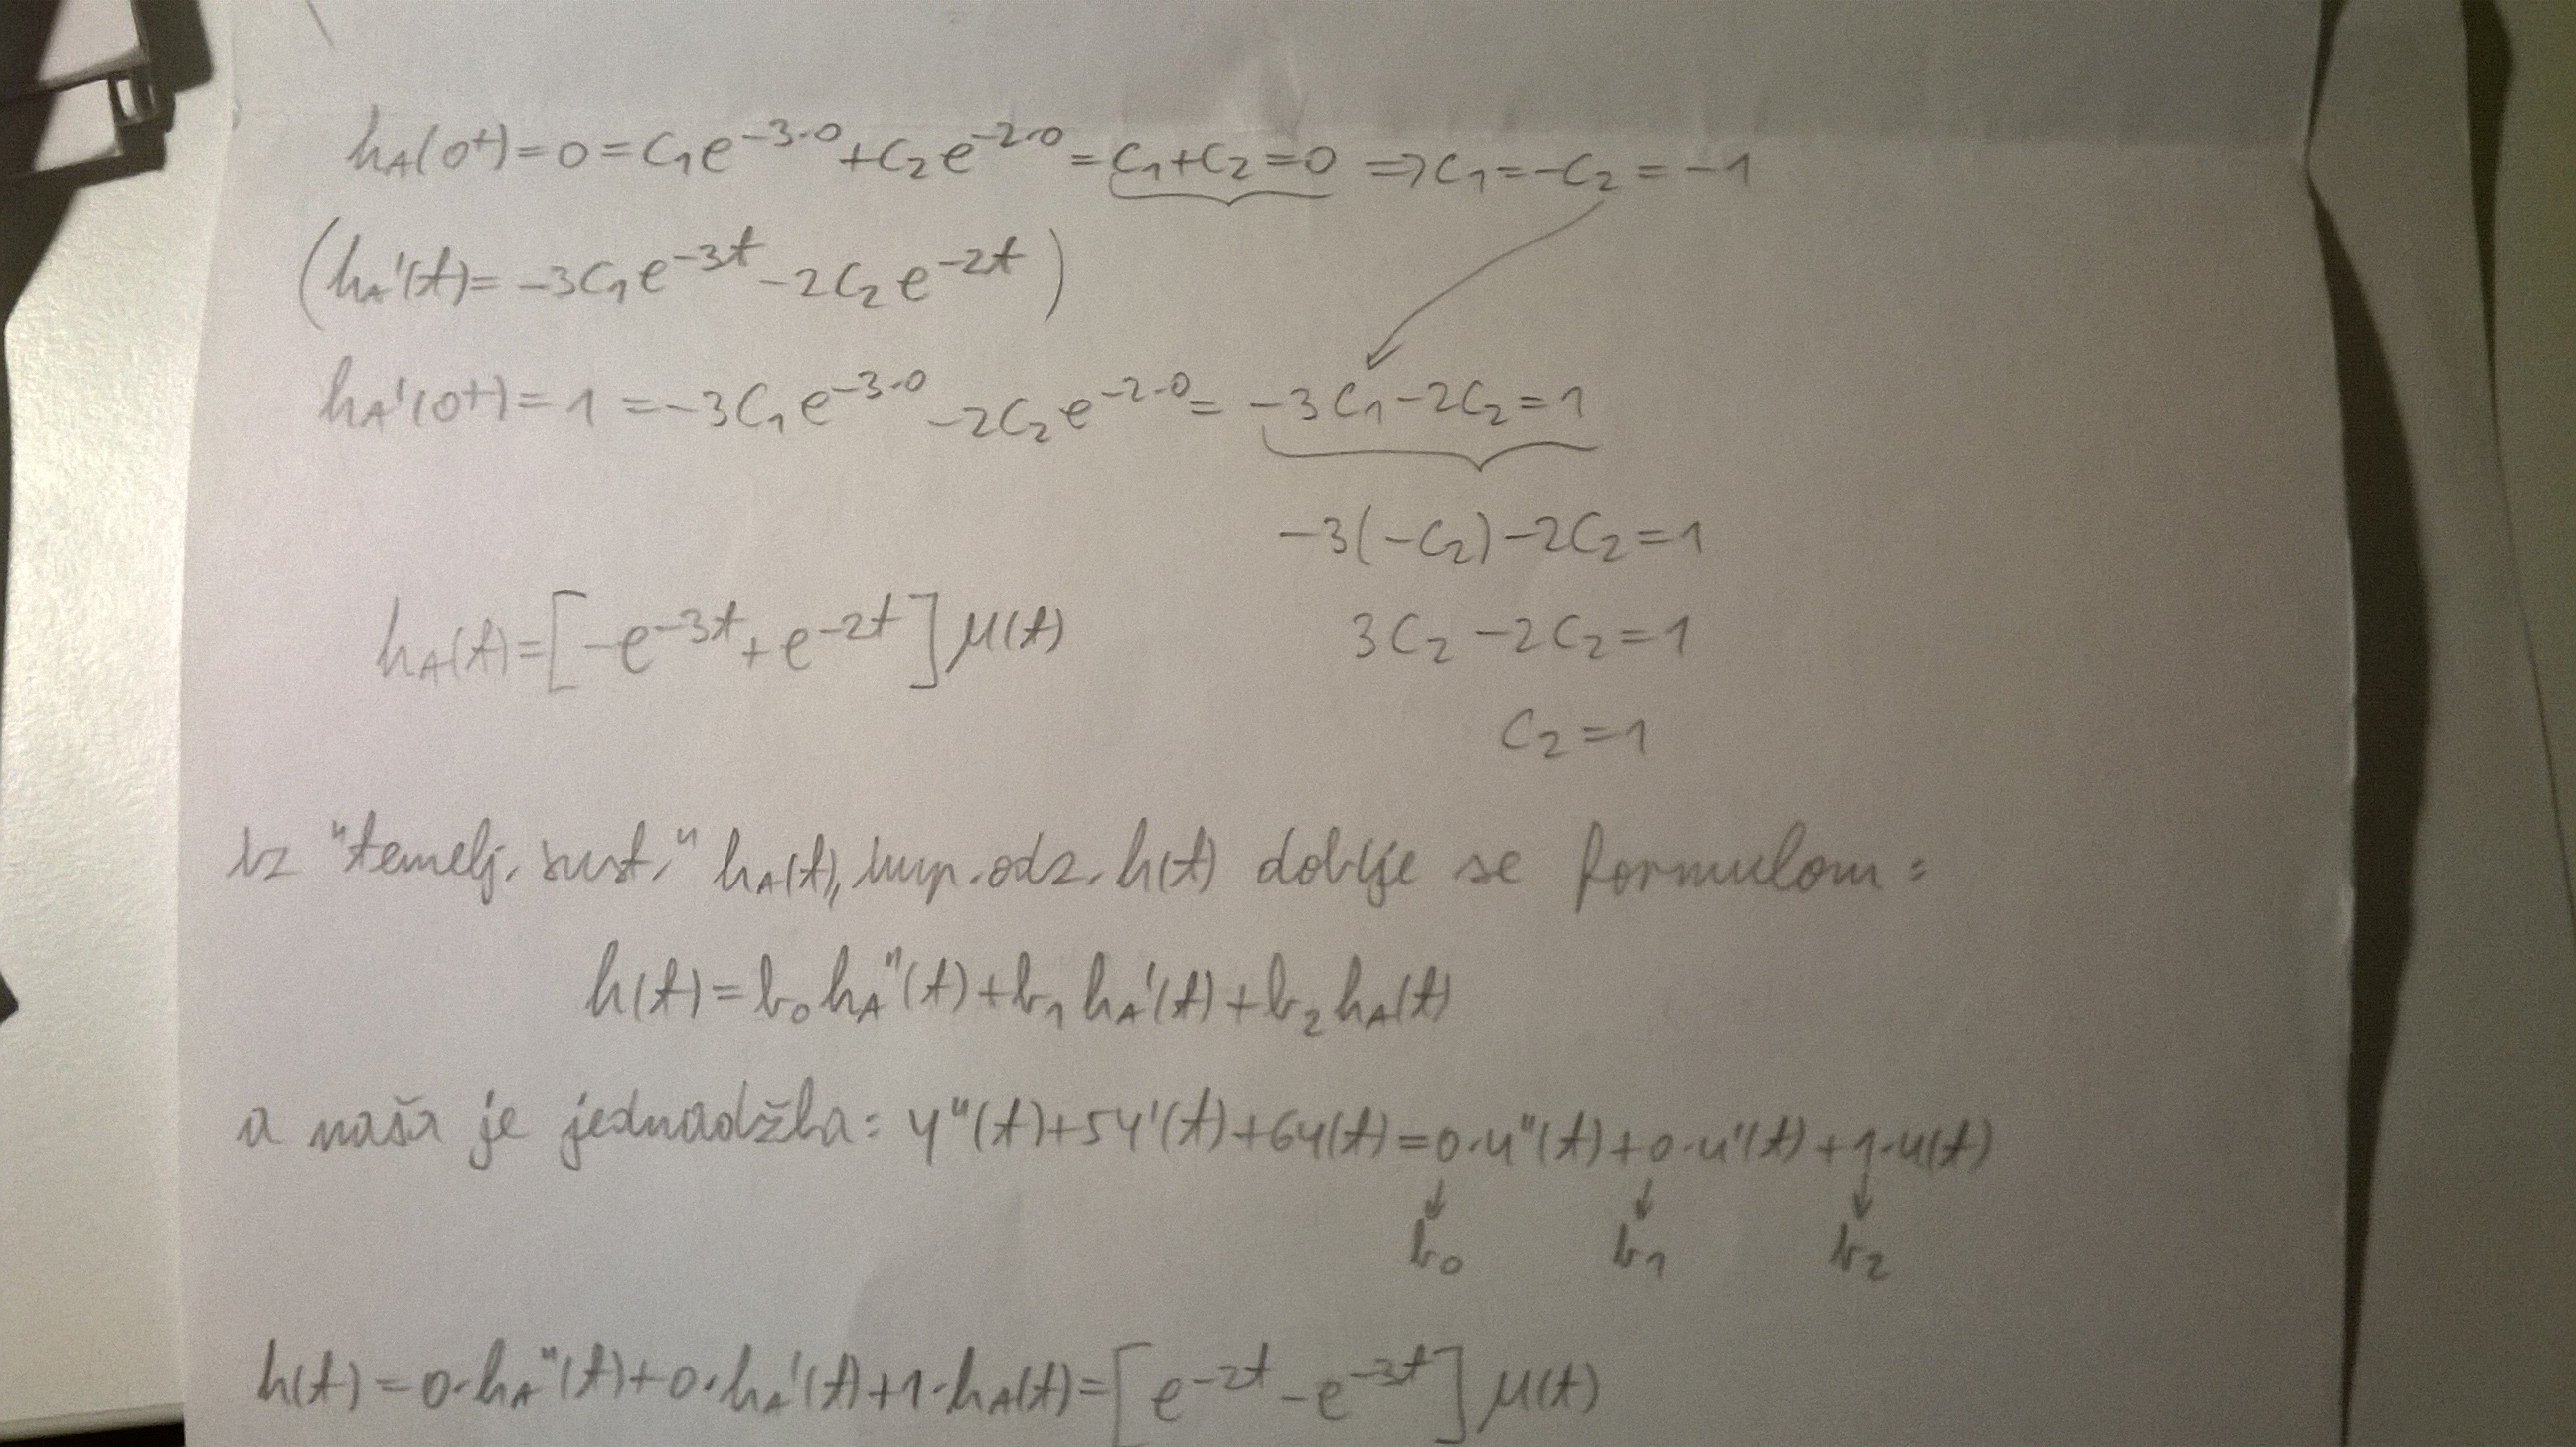 hA(0+)=0=C₁e^{-3·0}+C₂e^{-2·0}=C₁+C₂=0 ⇒C₁=-C₂=-1
(hA'(t)=-3C₁e^{-3t}-2C₂e^{-2t})
hA'(0+)=1=-3C₁e^{-3·0}-2C₂e^{-2·0}=-3C₁-2C₂=1
-3(-C₂)-2C₂=1
hA(t)=[-e^{-3t}+e^{-2t}]μ(t)
3C₂-2C₂=1
C₂=1
iz "temelj. sust." hA(t), imp. odz. h(t) dobije se formulom:
h(t)=b₀hA''(t)+b₁hA'(t)+b₂hA(t)
a naša je jednadžba: y''(t)+5y'(t)+6y(t)=0·u''(t)+0·u'(t)+1·u(t)
↓ ↓ ↓
b₀ b₁ b₂
h(t)=0·hA''(t)+0·hA'(t)+1·hA(t)=[e^{-2t}-e^{-3t}]μ(t)